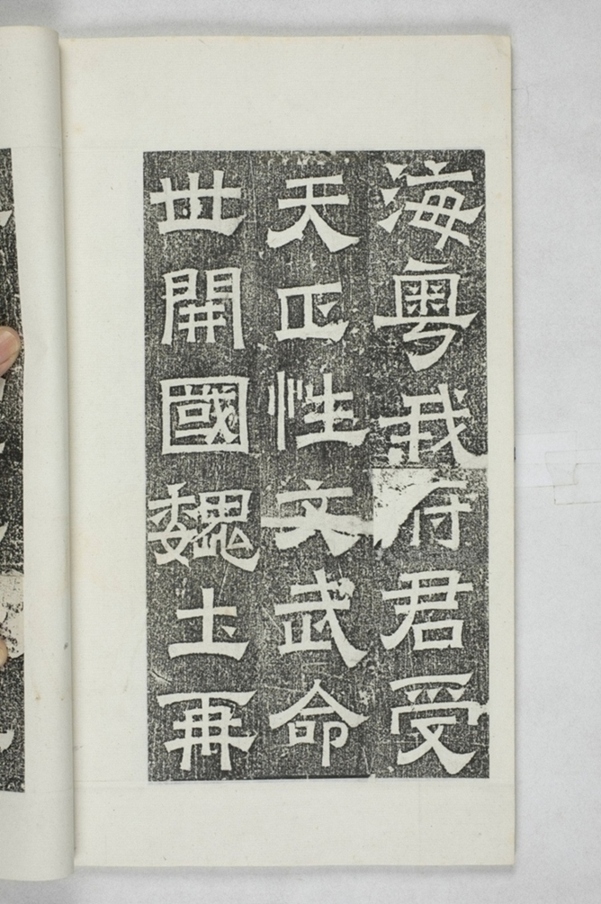 海粤我府君受
天正性文武命
世開國魏土再